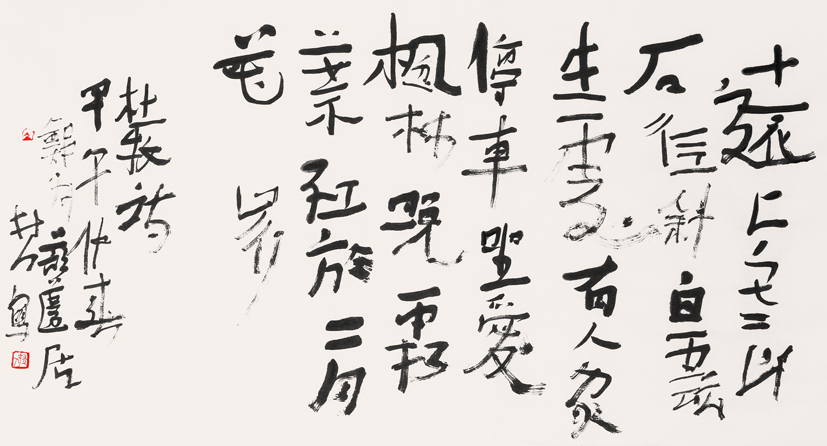 遠上寒山
石徑斜白雲
生處有人家
停車坐愛
楓林晚霜
葉紅於二月
花 山行
杜牧詩
甲午仲春
居